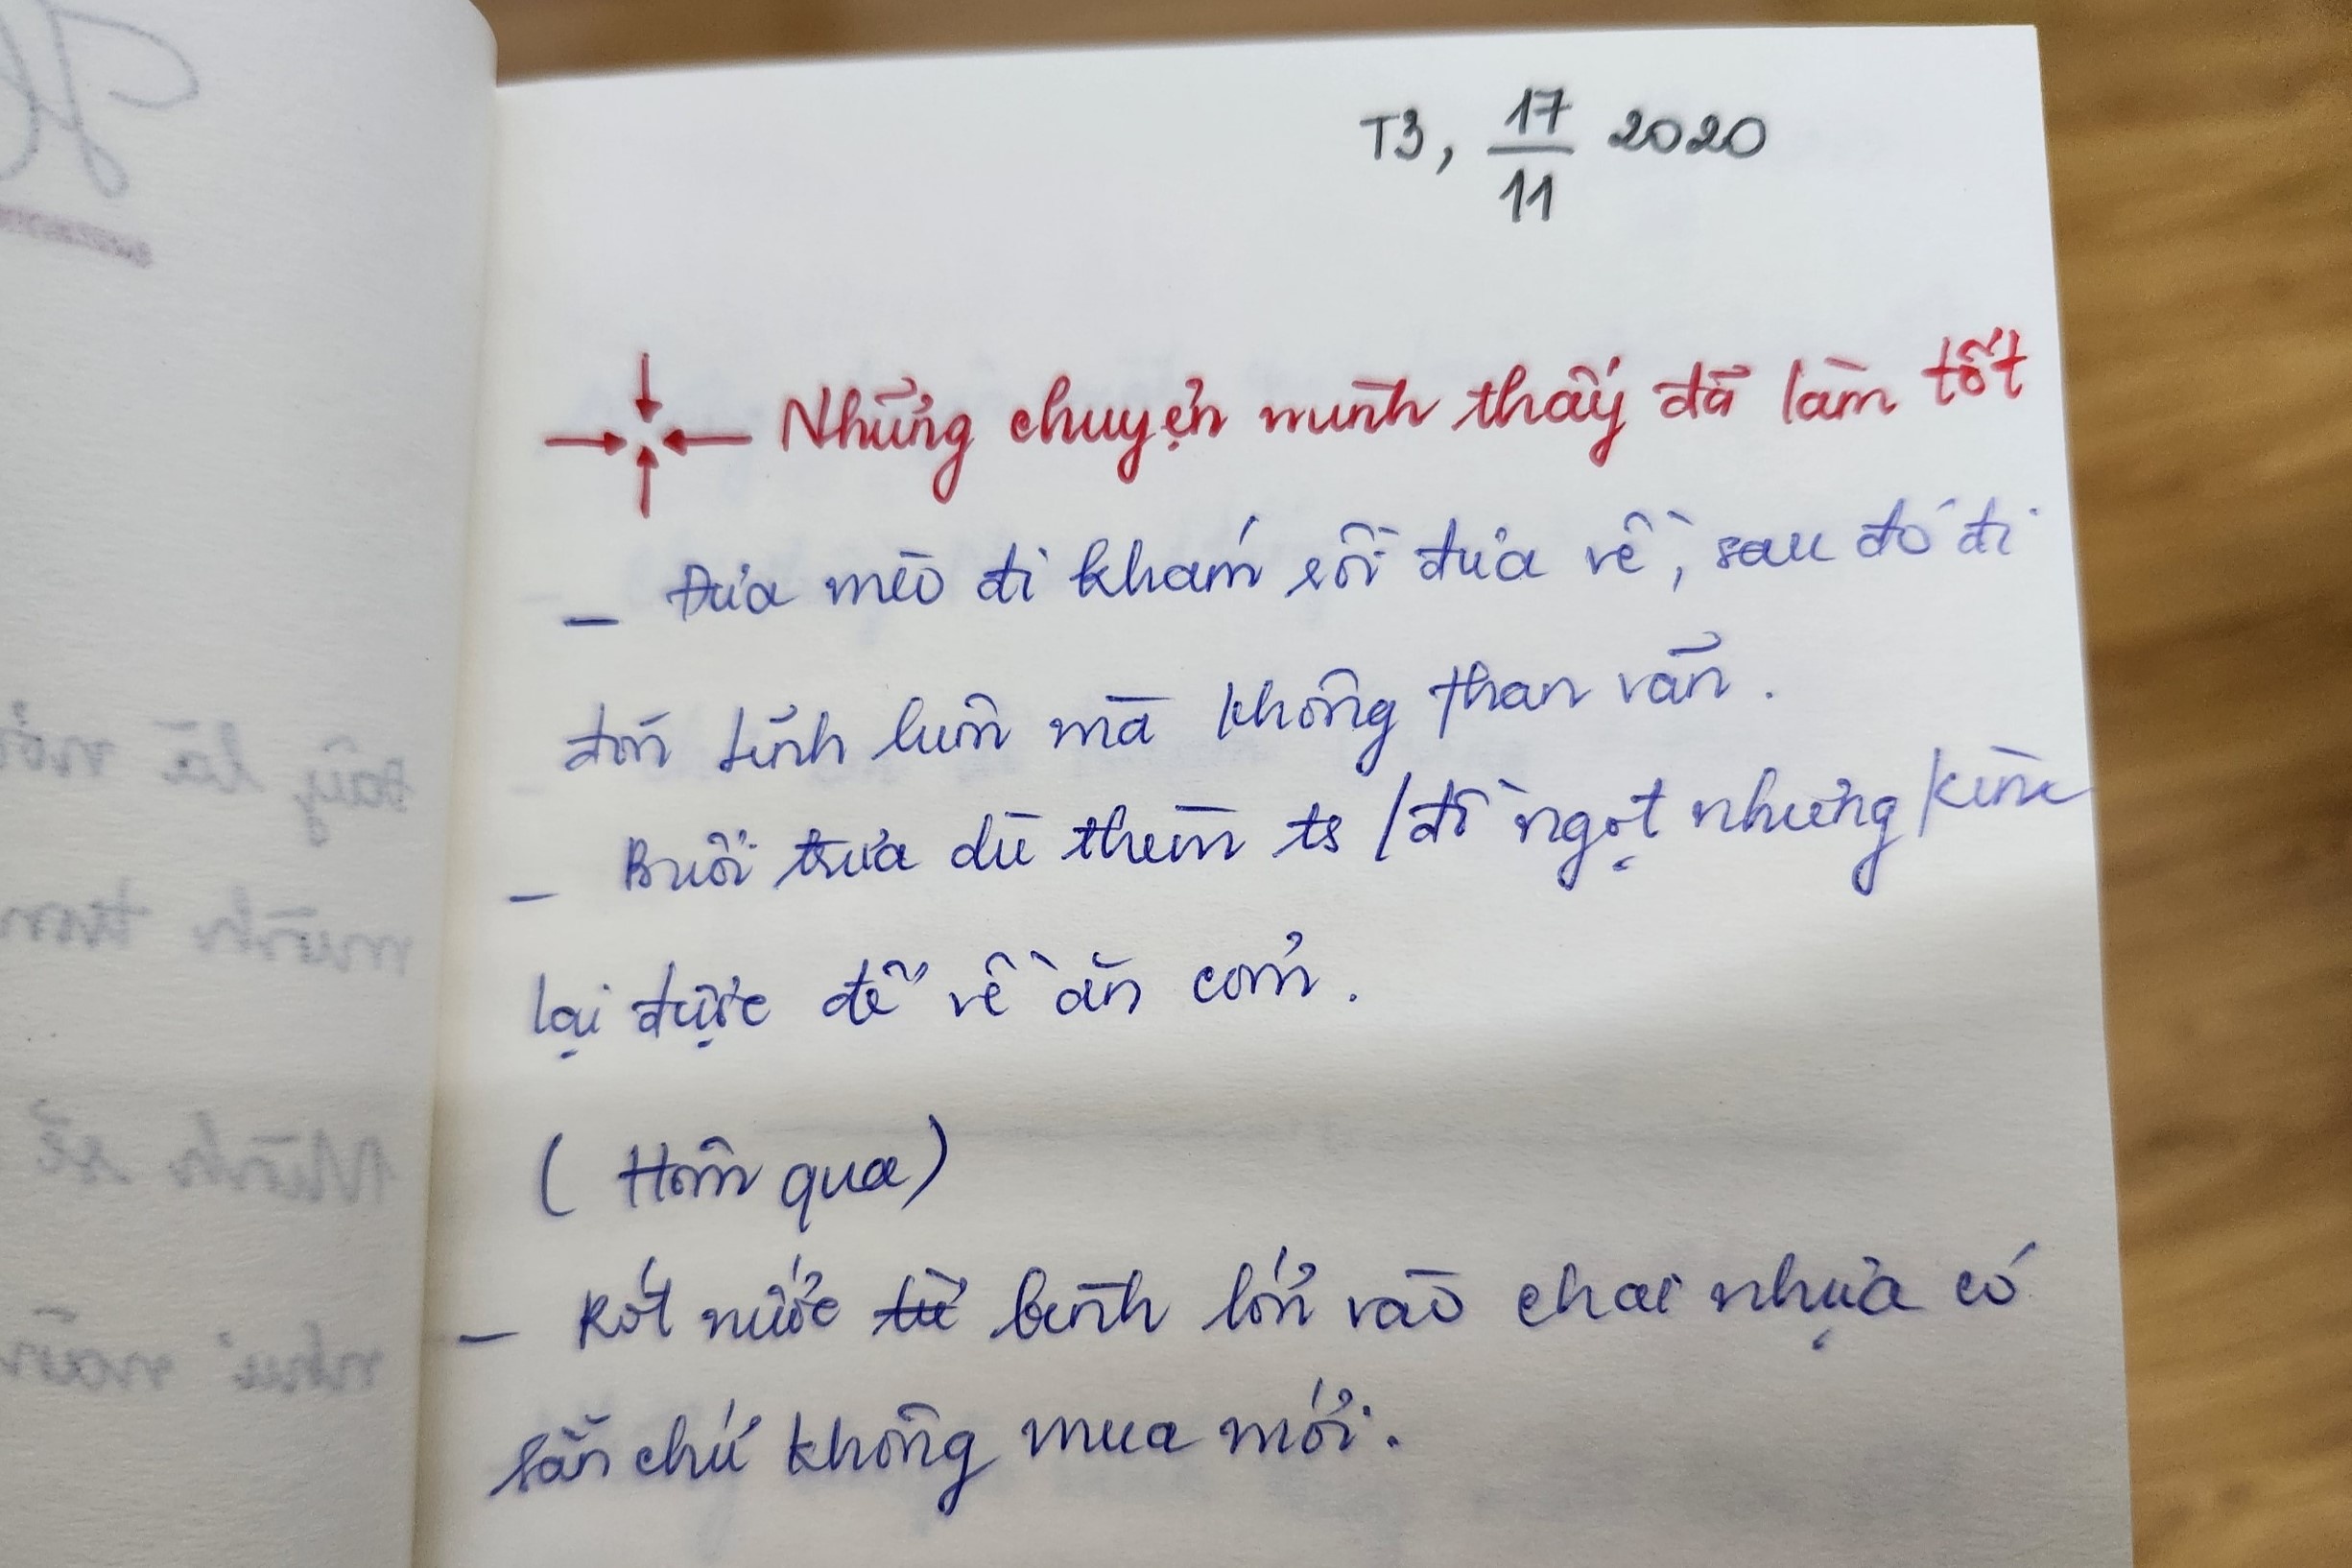 T3, 17/11 2020
Những chuyện mình thấy đã làm tốt
– Đưa mèo đi khám rồi đưa về, sau đó đi
đón tỉnh luôn mà không than vãn.
– Buổi trưa dù thèm ts / đồ ngọt nhưng kìm
lại được để về ăn cơm.
(Hôm qua)
– Rót nước từ bình lớn vào chai nhựa có
sẵn chứ không mua mới.